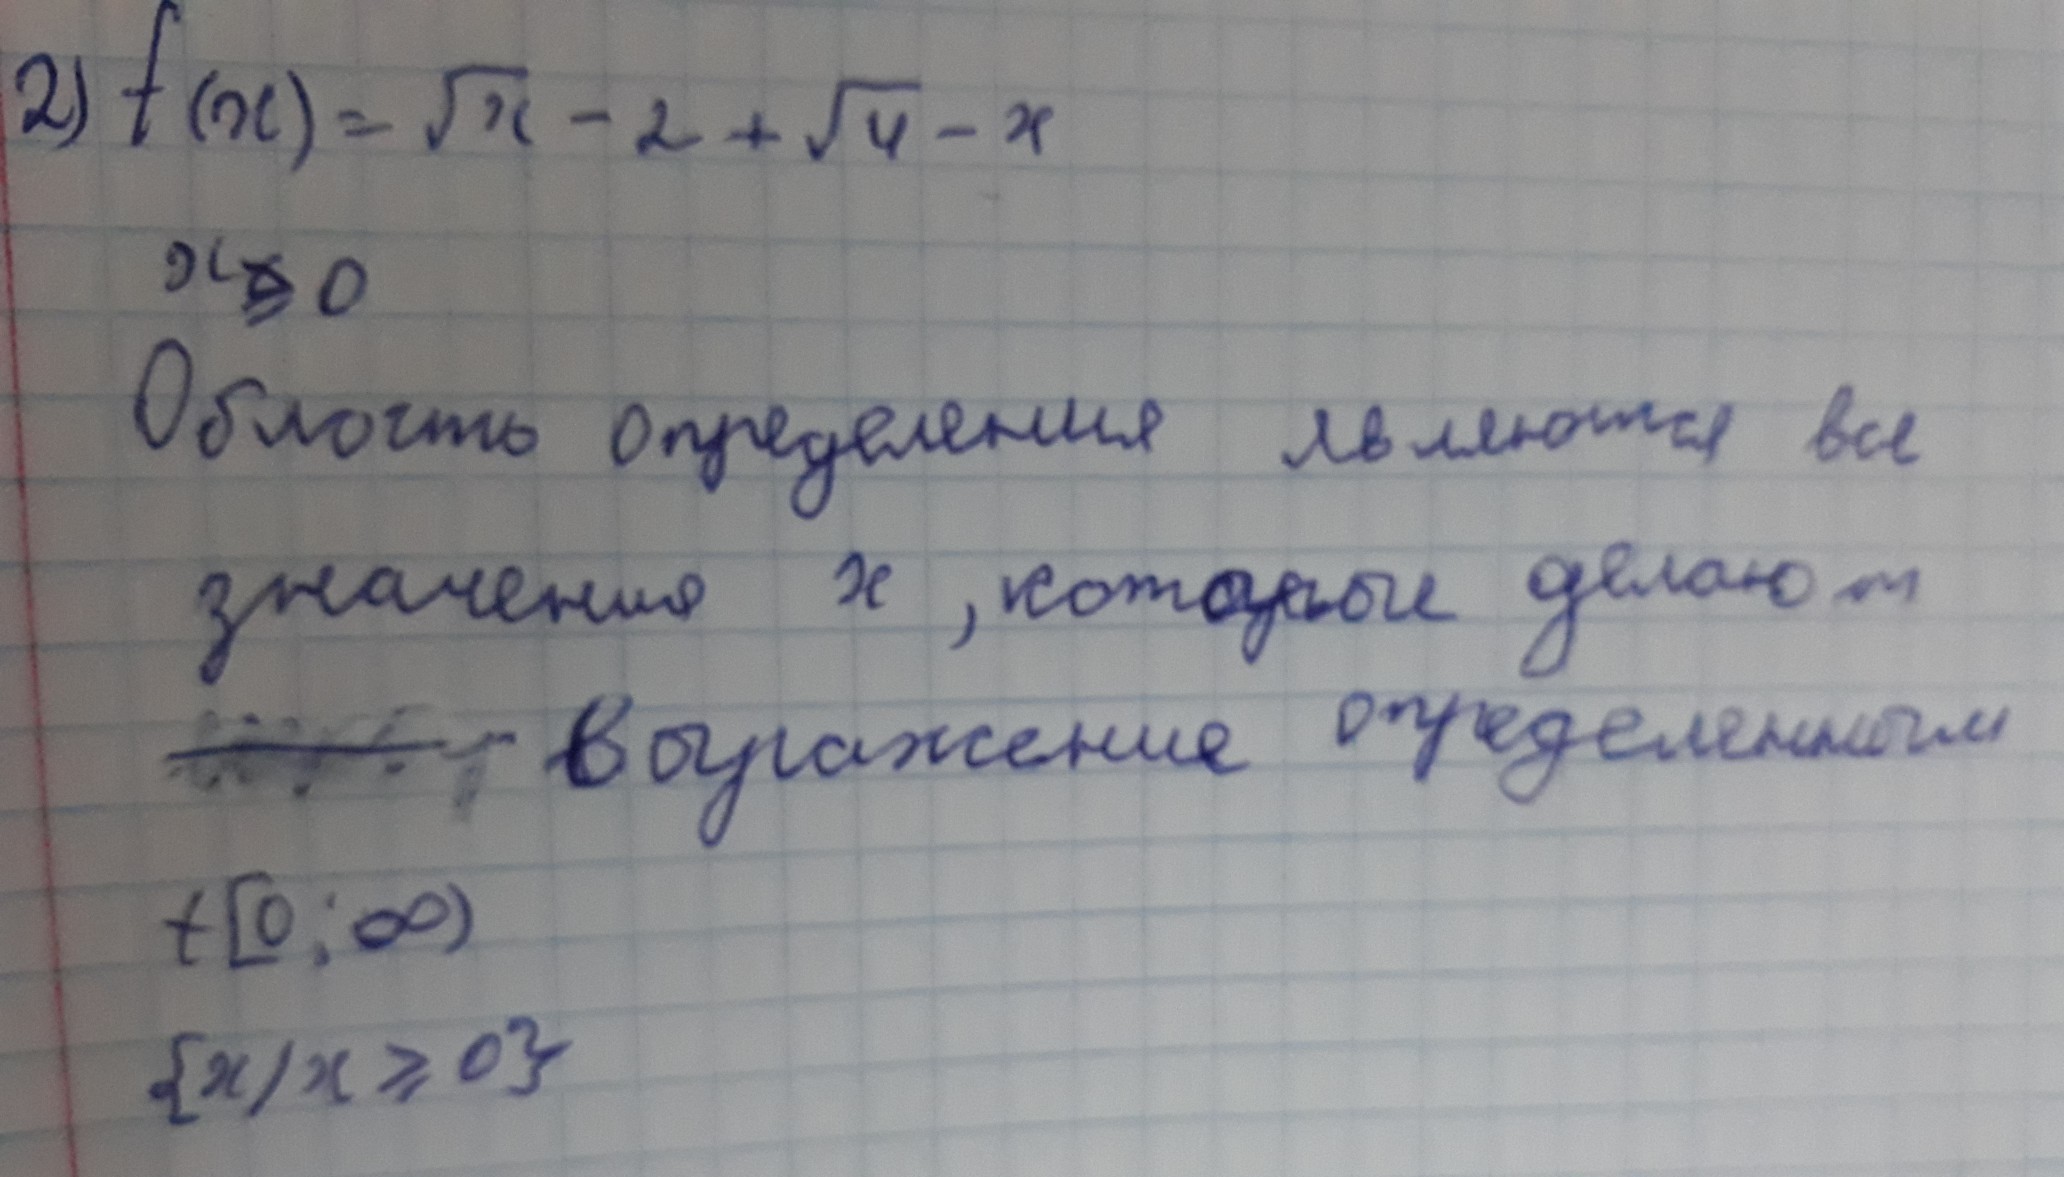 2) f(x) = √x - 2 + √4 - x
x ≥ 0
Область определения являются все
значения x, которые делают
выражение определенным
t[0; ∞)
{x/x ⩾ 0}